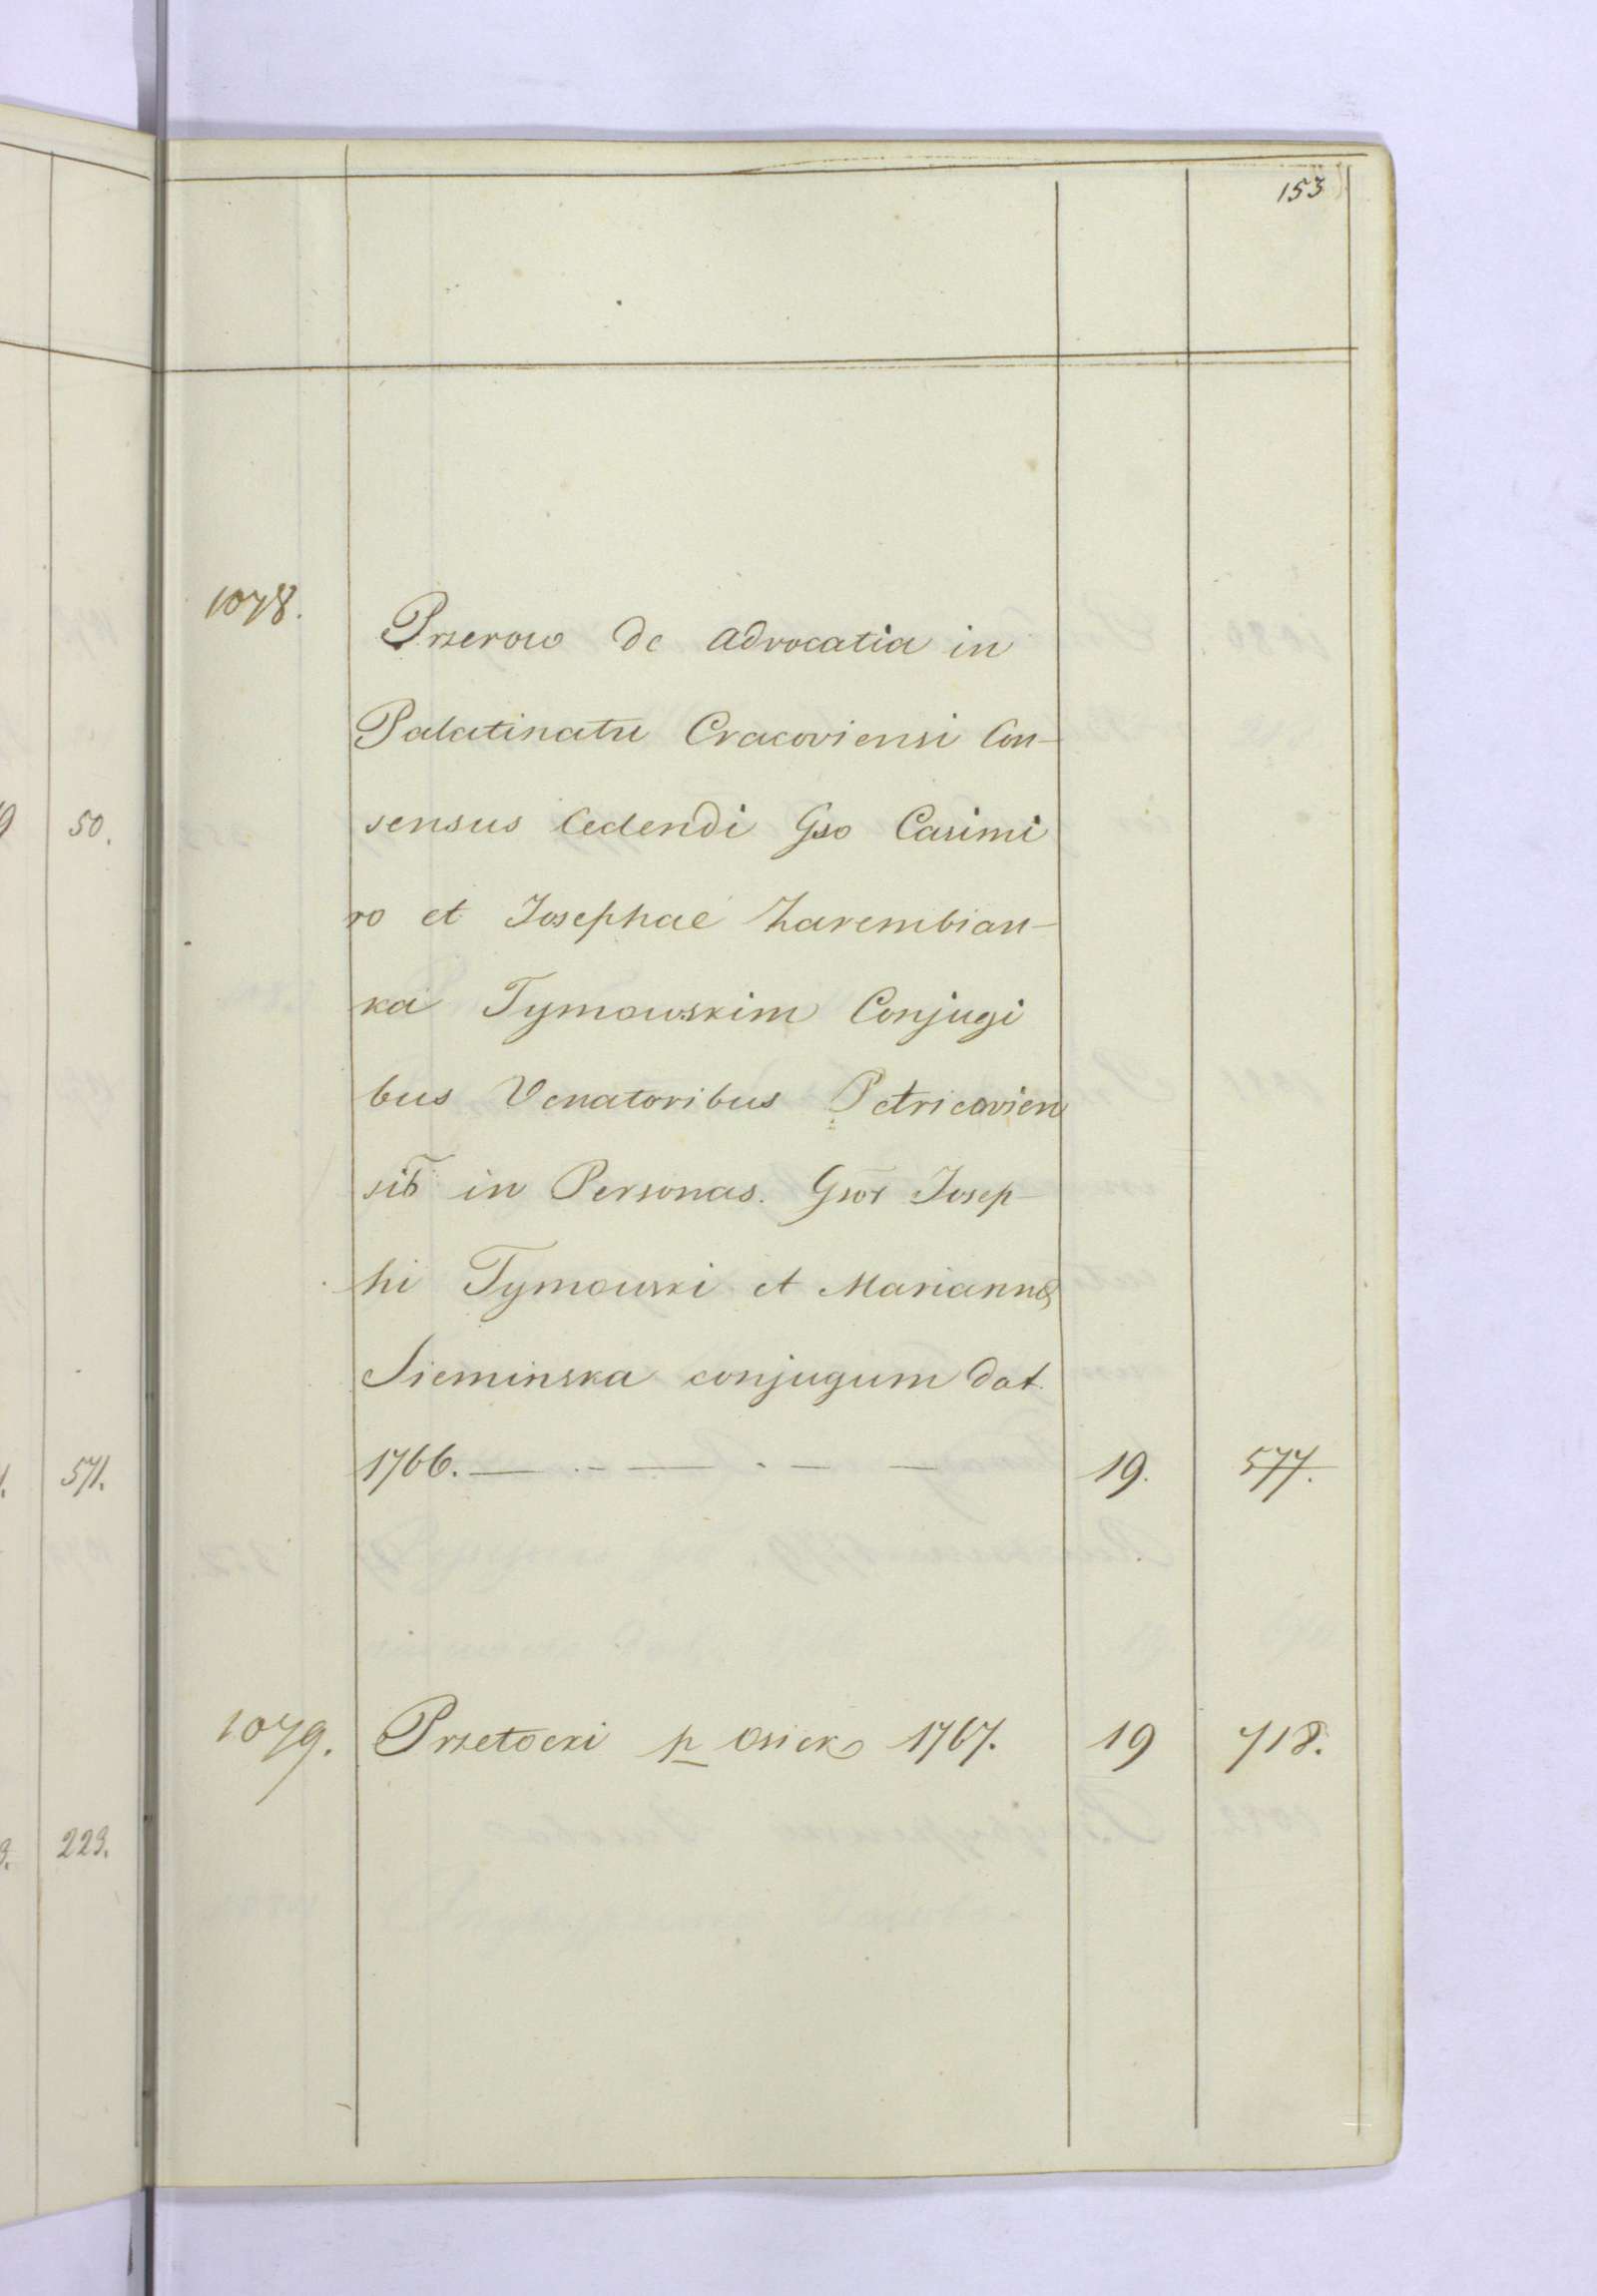 153
50.
571.
223.
1078.
Przerow de advocatia in
Palatinatu Cracoviensi Con-
sensus Cedendi Gso Casimi
ro et Josephae Zarembian-
ka Tymowskim Conjugi
bus Venatoribus Petricovien
sib in Personas. Gsor Josep-
hi Tymowski et Mariannae
Sieminska conjugum dat.
1766. 19. 577.
1079. Przetocki p Osiek 1767. 19 718.